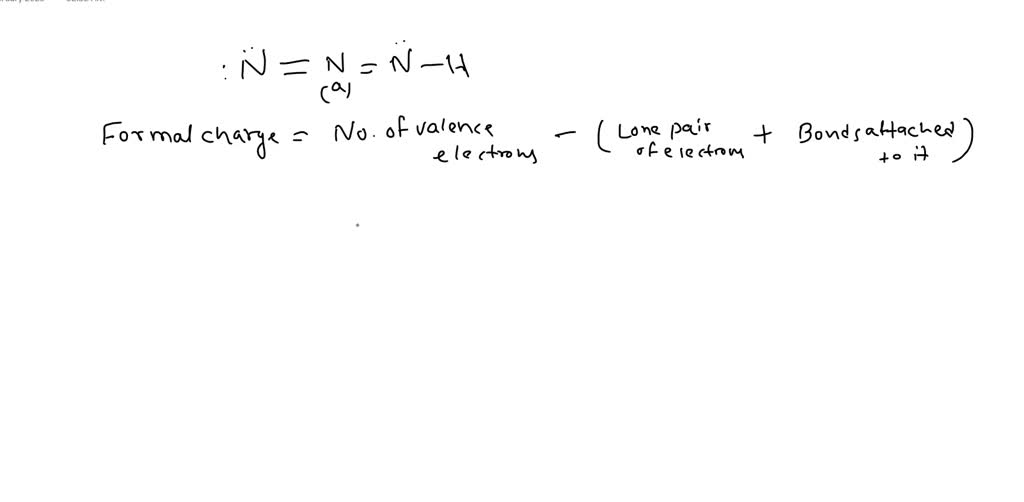 :N̈ = N = N̈ - H
(a)
Formal charge = No. of valence electrons - (Lone pair of electrons + Bonds attached to it)